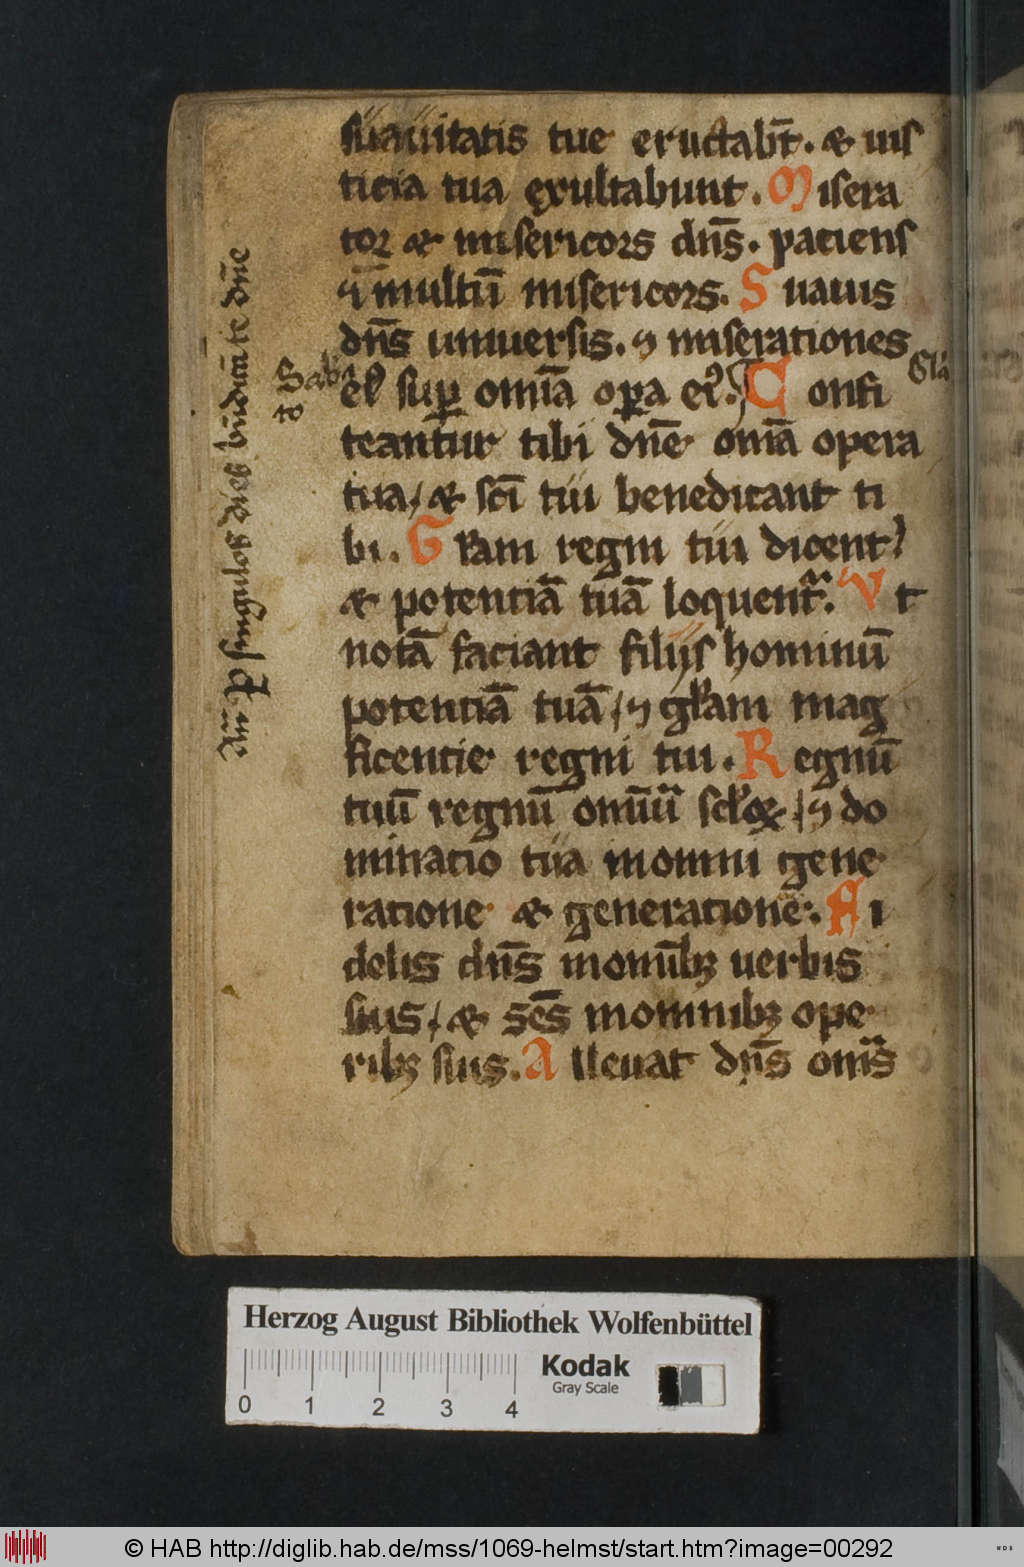 suauitatis tue eructabt̄. & ius
ticia tua exultabunt. Misera
tor & misericors dn̄s. paciens
⁊ multū misericors. Suauis
dn̄s uniuersis. ⁊ miserationes
ei᷒ suꝑ om̄ia oꝑa ei᷒. Confi
teantur tibi dn̄e om̄ia opera
tua / & sc̄i tui benedicant ti
bi. Gl̄am regni tui dicent
& potentiā tuā loquent᷑. Vt
notā faciant filijs hominū
potentiā tuā / ⁊ gl̄am mag
ficentie regni tui. Regnū
tuū regnū omniū sclo̵ꝝ / ⁊ do
minatio tua in omni gene
ratione & generationē. Fi
delis dn̄s in omnibꝫ uerbis
suis / & sc̄s in omnibꝫ ope
ribꝫ suis. Alleuat dn̄s omēs
Sabba
to
Gl̄a
An̄ Ꝑ singulos dies bn̄dicā te dn̄e
Herzog August Bibliothek Wolfenbüttel
Kodak
Gray Scale
0 1 2 3 4
© HAB http://diglib.hab.de/mss/1069-helmst/start.htm?image=00292